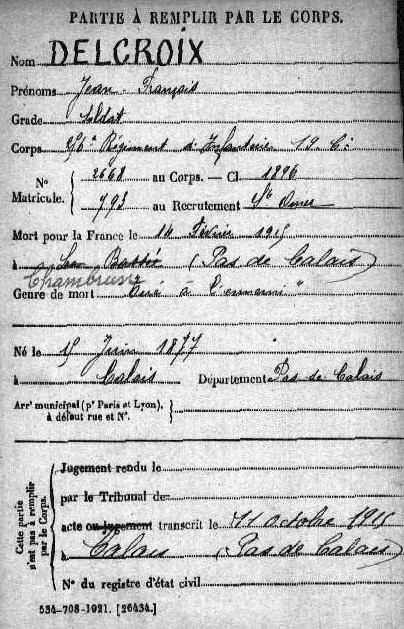 PARTIE À REMPLIR PAR LE CORPS.
Nom DELCROIX
Prénoms Jean François
Grade Soldat
Corps 256e Régiment d'Infanterie 19 Cie
N° Matricule. 2668 au Corps. — Cl 1896
793 au Recrutement St Omer
Mort pour la France le 14 Février 1915
à (Pas de Calais)
Genre de mort "Tué à l'ennemi"
Né le 15 Juin 1877
à Calais Département Pas de Calais
Arrt municipal (pr Paris et Lyon),
à défaut rue et N°.
Cette partie
n'est pas à remplir
par le Corps.
Jugement rendu le
par le Tribunal de
acte ou jugement transcrit le 11 Octobre 1915
à Calais (Pas de Calais)
N° du registre d'état civil
534-708-1921. [26434.]